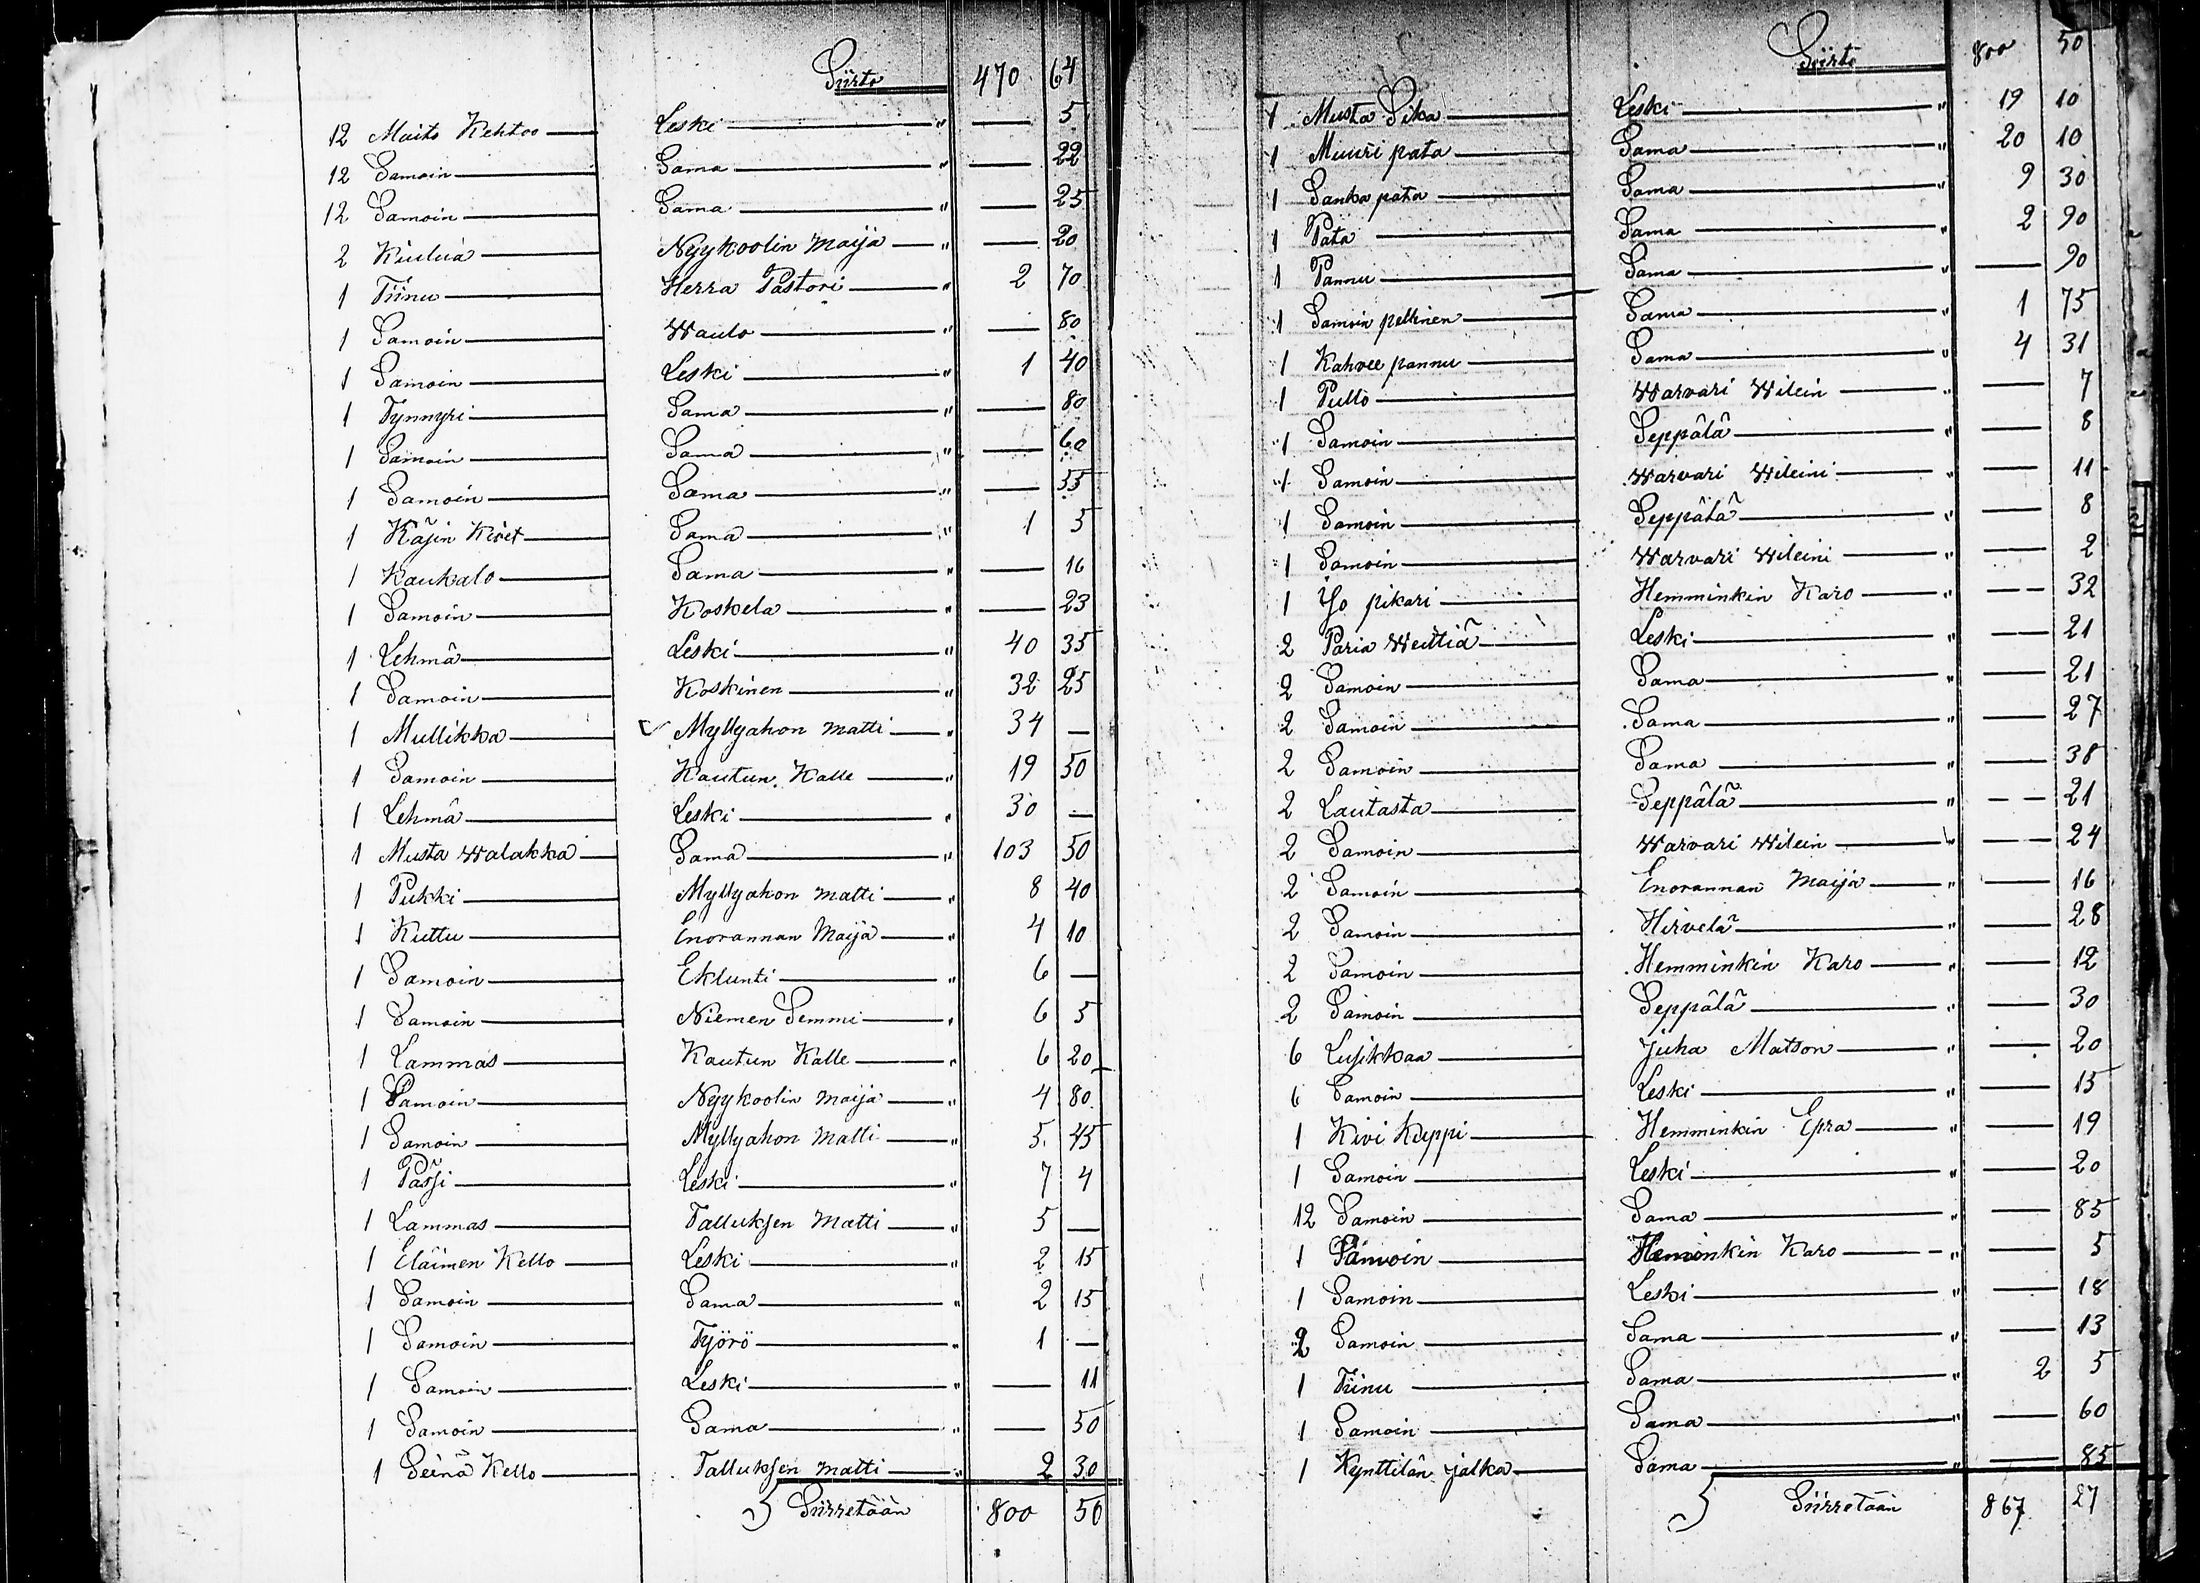 Siirto 470 64
12 Maito Kehtoo Leski " — 5
12 Samoin Sama " — 22
12 Samoin Sama " — 25
2 Kiulua Nyykoolin Maija " — 20
1 Tiinu Herra Pastori " 2 70
1 Samoin Waulo " — 80
1 Samoin Leski " 1 40
1 Tynnyri Sama " — 80
1 Samoin Sama " — 60
1 Samoin Sama " — 55
1 Käsin Kivet Sama " 1 5
1 Kaukalo Sama " — 16
1 Samoin Koskela " — 23
1 Lehmä Leski " 40 35
1 Samoin Koskinen " 32 25
1 Mullikka Myllyahon Matti " 34 —
1 Samoin Kautun Kalle " 19 50
1 Lehmä Leski " 30 —
1 Musta Walakka Sama " 103 50
1 Pukki Myllyahon Matti " 8 40
1 Kuttu Enorannan Maija " 4 10
1 Samoin Eklunti " 6 —
1 Samoin Niemen Semmi " 6 5
1 Lammas Kautun Kalle " 6 20
1 Samoin Nyykoolin Maija " 4 80
1 Samoin Myllyahon Matti " 5 45
1 Pässi Leski " 7 4
1 Lammas Talluksen Matti " 5 —
1 Eläimen Kello Leski " 2 15
1 Samoin Sama " 2 15
1 Samoin Työrö " 1 —
1 Samoin Leski " — 11
1 Samoin Sama " — 50
1 Seinä Kello Talluksen Matti " 2 30
Siirretään 800 50
Siirto 800 50
1 Musta Sika Leski " 19 10
1 Muuri pata Sama " 20 10
1 Sanka pata Sama " 9 30
1 Pata Sama " 2 90
1 Pannu Sama " — 90
1 Samoin peltinen Sama " 1 75
1 Kahvee pannu Sama " 4 31
1 Pullo Warvari Wilein " — 7
1 Samoin Seppälä " — 8
1 Samoin Warvari Wileini " — 11
1 Samoin Seppälä " — 8
1 Samoin Warvari Wileini " — 2
1 Iso pikari Hemminkin Karo " — 32
2 Paria Weittiä Leski " — 21
2 Samoin Sama " — 21
2 Samoin Sama " — 27
2 Samoin Sama " — 38
2 Lautasta Seppälä " — 21
2 Samoin Warvari Wilein " — 24
2 Samoin Enorannan Maija " — 16
2 Samoin Hirvelä " — 28
2 Samoin Hemminkin Karo " — 12
2 Samoin Seppälä " — 30
6 Lusikkaa Juha Matson " — 20
6 Samoin Leski " — 15
1 Kivi Kuppi Hemminkin Epra " — 19
1 Samoin Leski " — 20
12 Samoin Sama " — 85
1 Samoin Heminkin Karo " — 5
1 Samoin Leski " — 18
2 Samoin Sama " — 13
1 Tiinu Sama " 2 5
1 Samoin Sama " — 60
1 Kynttilän jalka Sama " — 85
Siirretään 867 27